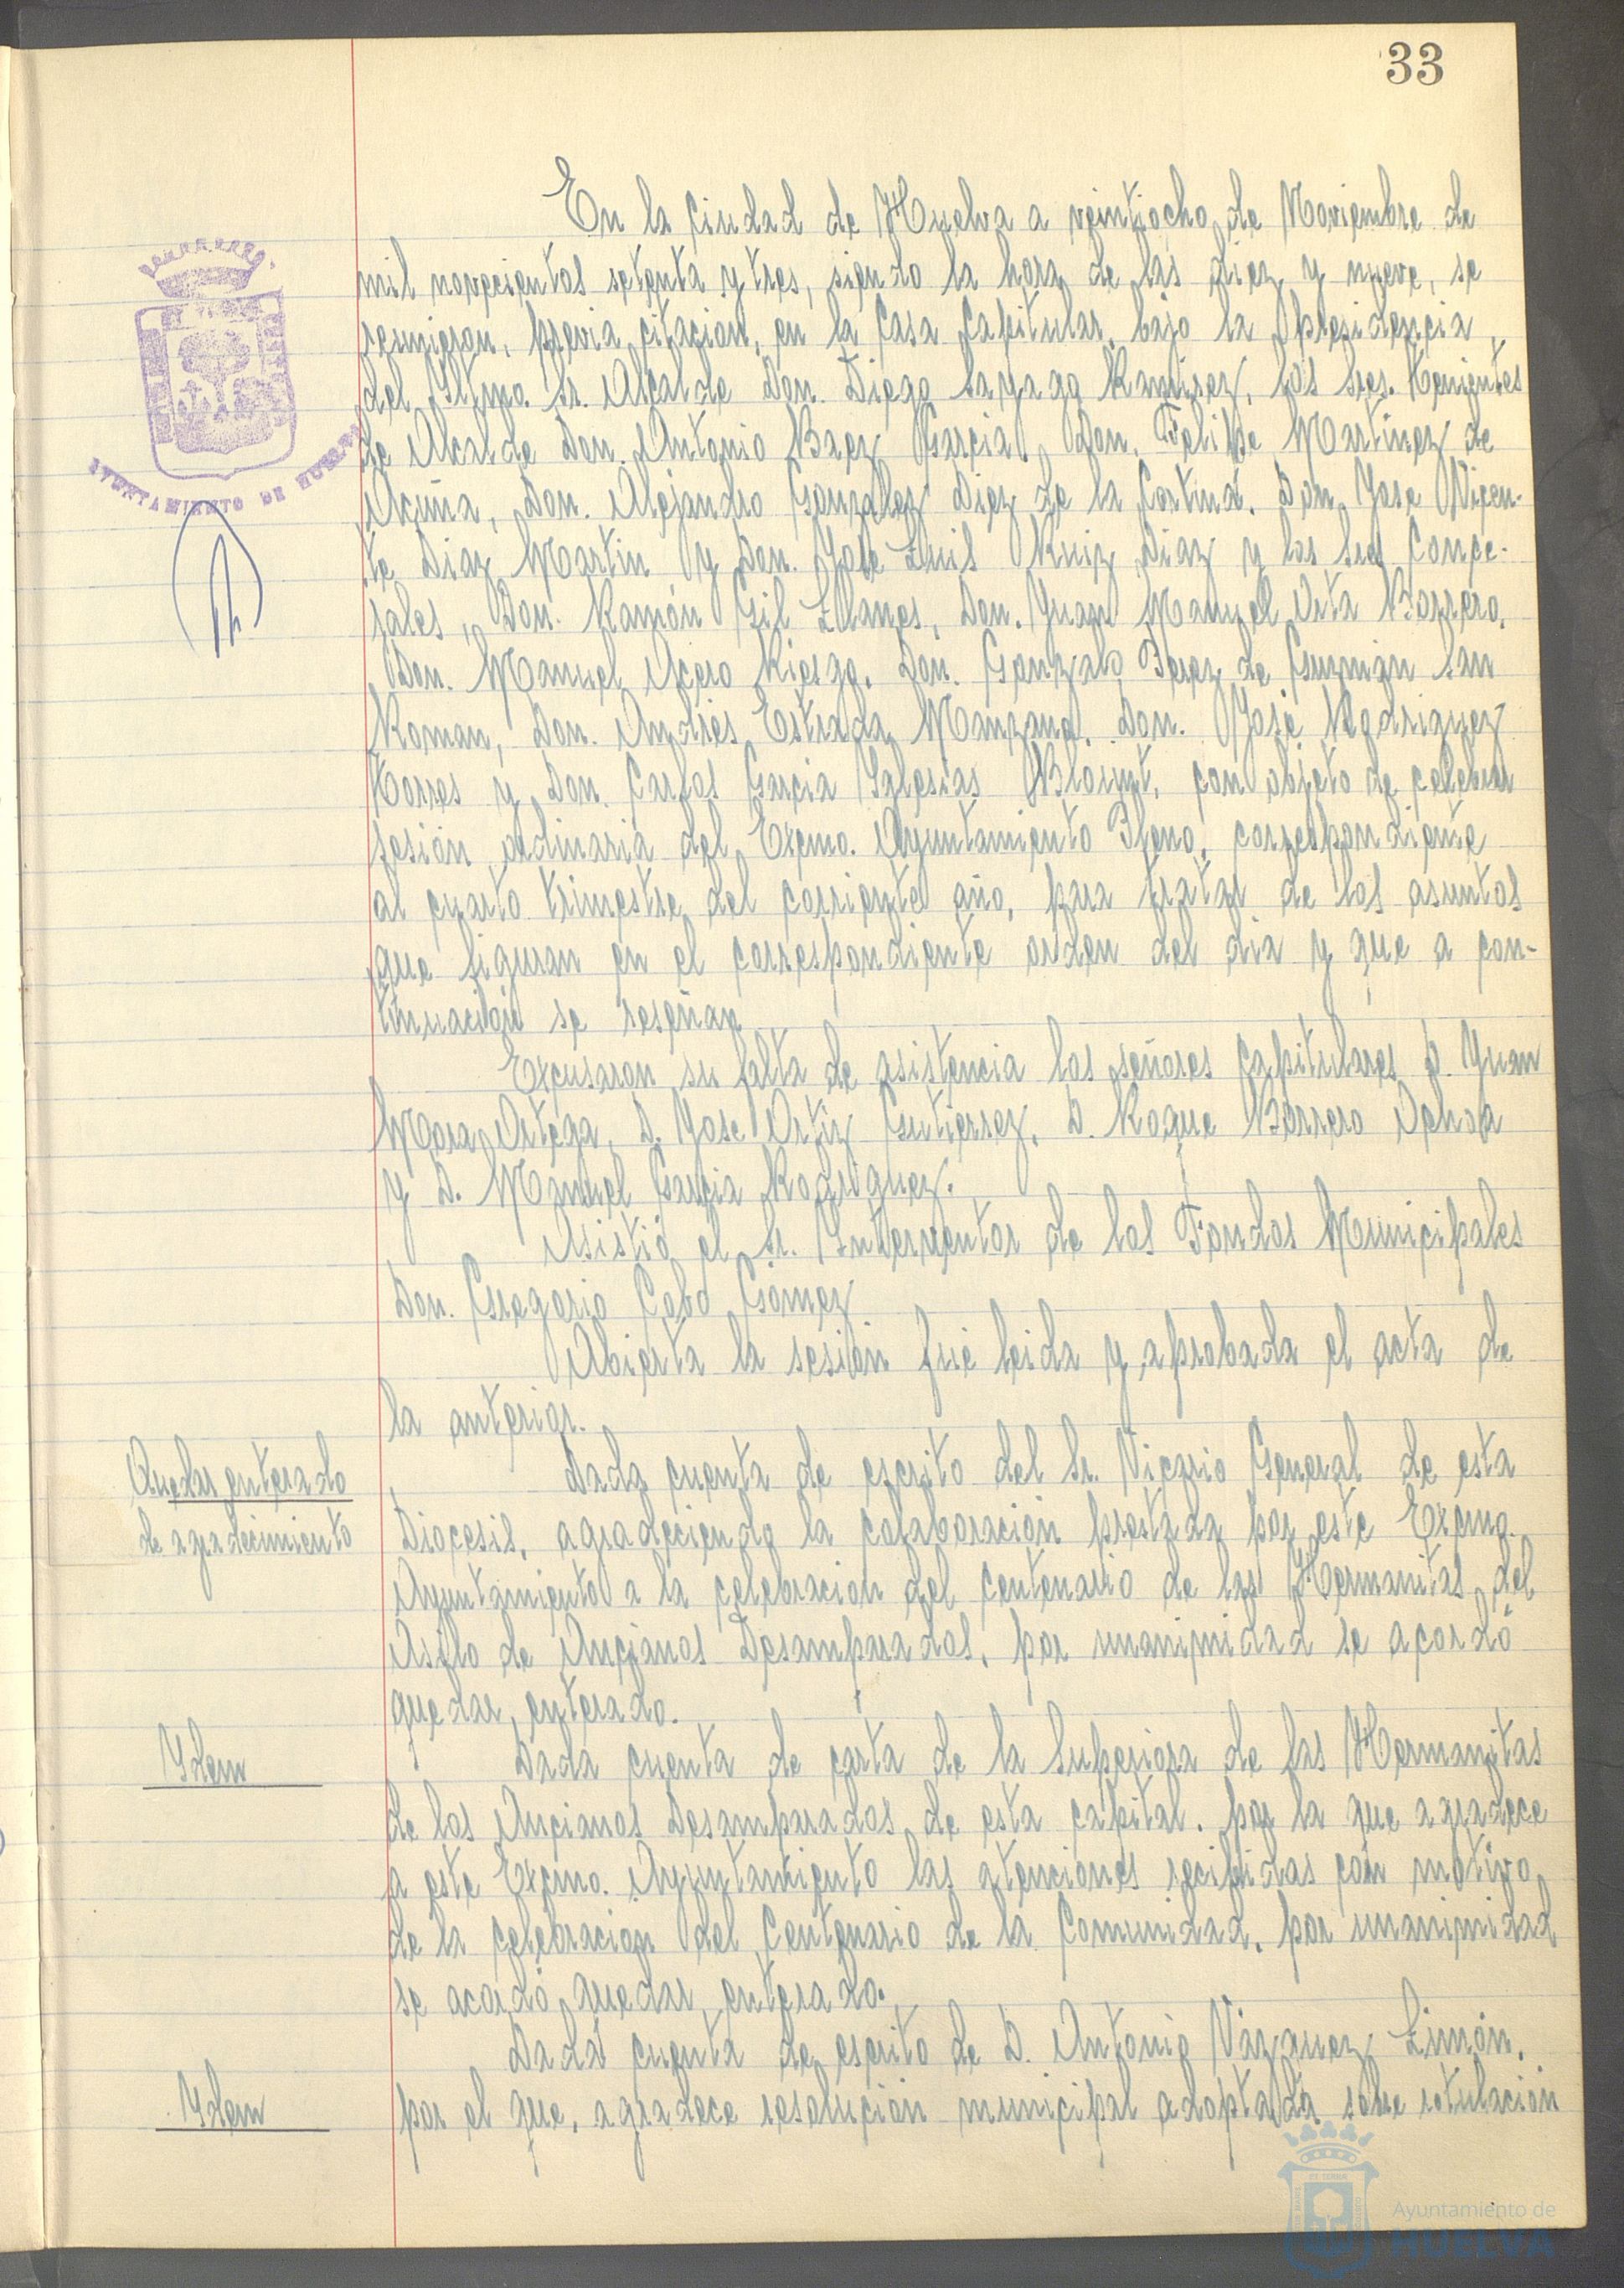 33
En la Ciudad de Huelva a veintiocho de Noviembre de
mil novecientos setenta y tres, siendo la hora de las diez y nueve, se
reunieron, previa citación, en la Casa Capitular, bajo la presidencia
del Iltmo. Sr. Alcalde Don. Diego Sayago Ramirez, los Sres. Tenientes
de Alcalde Don. Antonio Baez Garcia, Don. Felipe Martinez de
Acuña, Don. Alejandro Gonzalez Diez de la Cortina, Don. Jose Vicen-
te Diaz Martin y Don. Jose Luis Ruiz Diaz y los Sres Conce-
jales, Don. Ramón Gil Llanes, Don. Juan Manuel Orta Borrero,
Don. Manuel Acero Riesgo, Don. Gonzalo Perez de Guzmán San
Roman, Don. Andrés Estrada Manzano, Don. José Rodriguez
Torres y Don. Carlos Garcia Iglesias Blount, con objeto de celebrar
sesión ordinaria del Excmo. Ayuntamiento Pleno, correspondiente
al cuarto trimestre del corriente año, para tratar de los asuntos
que figuran en el correspondiente orden del dia y que a con-
tinuación se reseñan
Excusaron su falta de asistencia los señores Capitulares D. Juan
Mora Ortega, D. Jose Ortiz Gutierrez, D. Roque Borrero Ochoa
y D. Manuel Garcia Rodriguez.
Asistió el Sr. Interventor de los Fondos Municipales
Don. Gregorio Cobo Gómez
Abierta la sesión fué leida y aprobada el acta de
la anterior.
Quedar enterado
de agradecimiento
Dada cuenta de escrito del Sr. Vicario General de esta
Diocesis, agradeciendo la colaboración prestada por este Excmo.
Ayuntamiento a la celebración del centenario de las Hermanitas del
Asilo de Ancianos Desamparados, por unanimidad se acordó
quedar enterado.
Idem
Dada cuenta de carta de la Superiora de las Hermanitas
de los Ancianos Desamparados de esta capital, por la que agradece
a este Excmo. Ayuntamiento las atenciones recibidas con motivo
de la celebración del Centenario de la Comunidad, por unanimidad
se acordó quedar enterado.
Idem
Dada cuenta de escrito de D. Antonio Vázquez Limón,
por el que, agradece resolución municipal adoptada sobre rotulación
AYUNTAMIENTO DE HUELVA
Ayuntamiento de
HUELVA